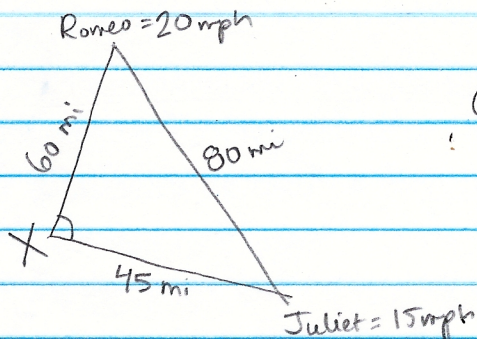 Romeo = 20 mph
60 mi
80 mi
X
45 mi
Juliet = 15 mph